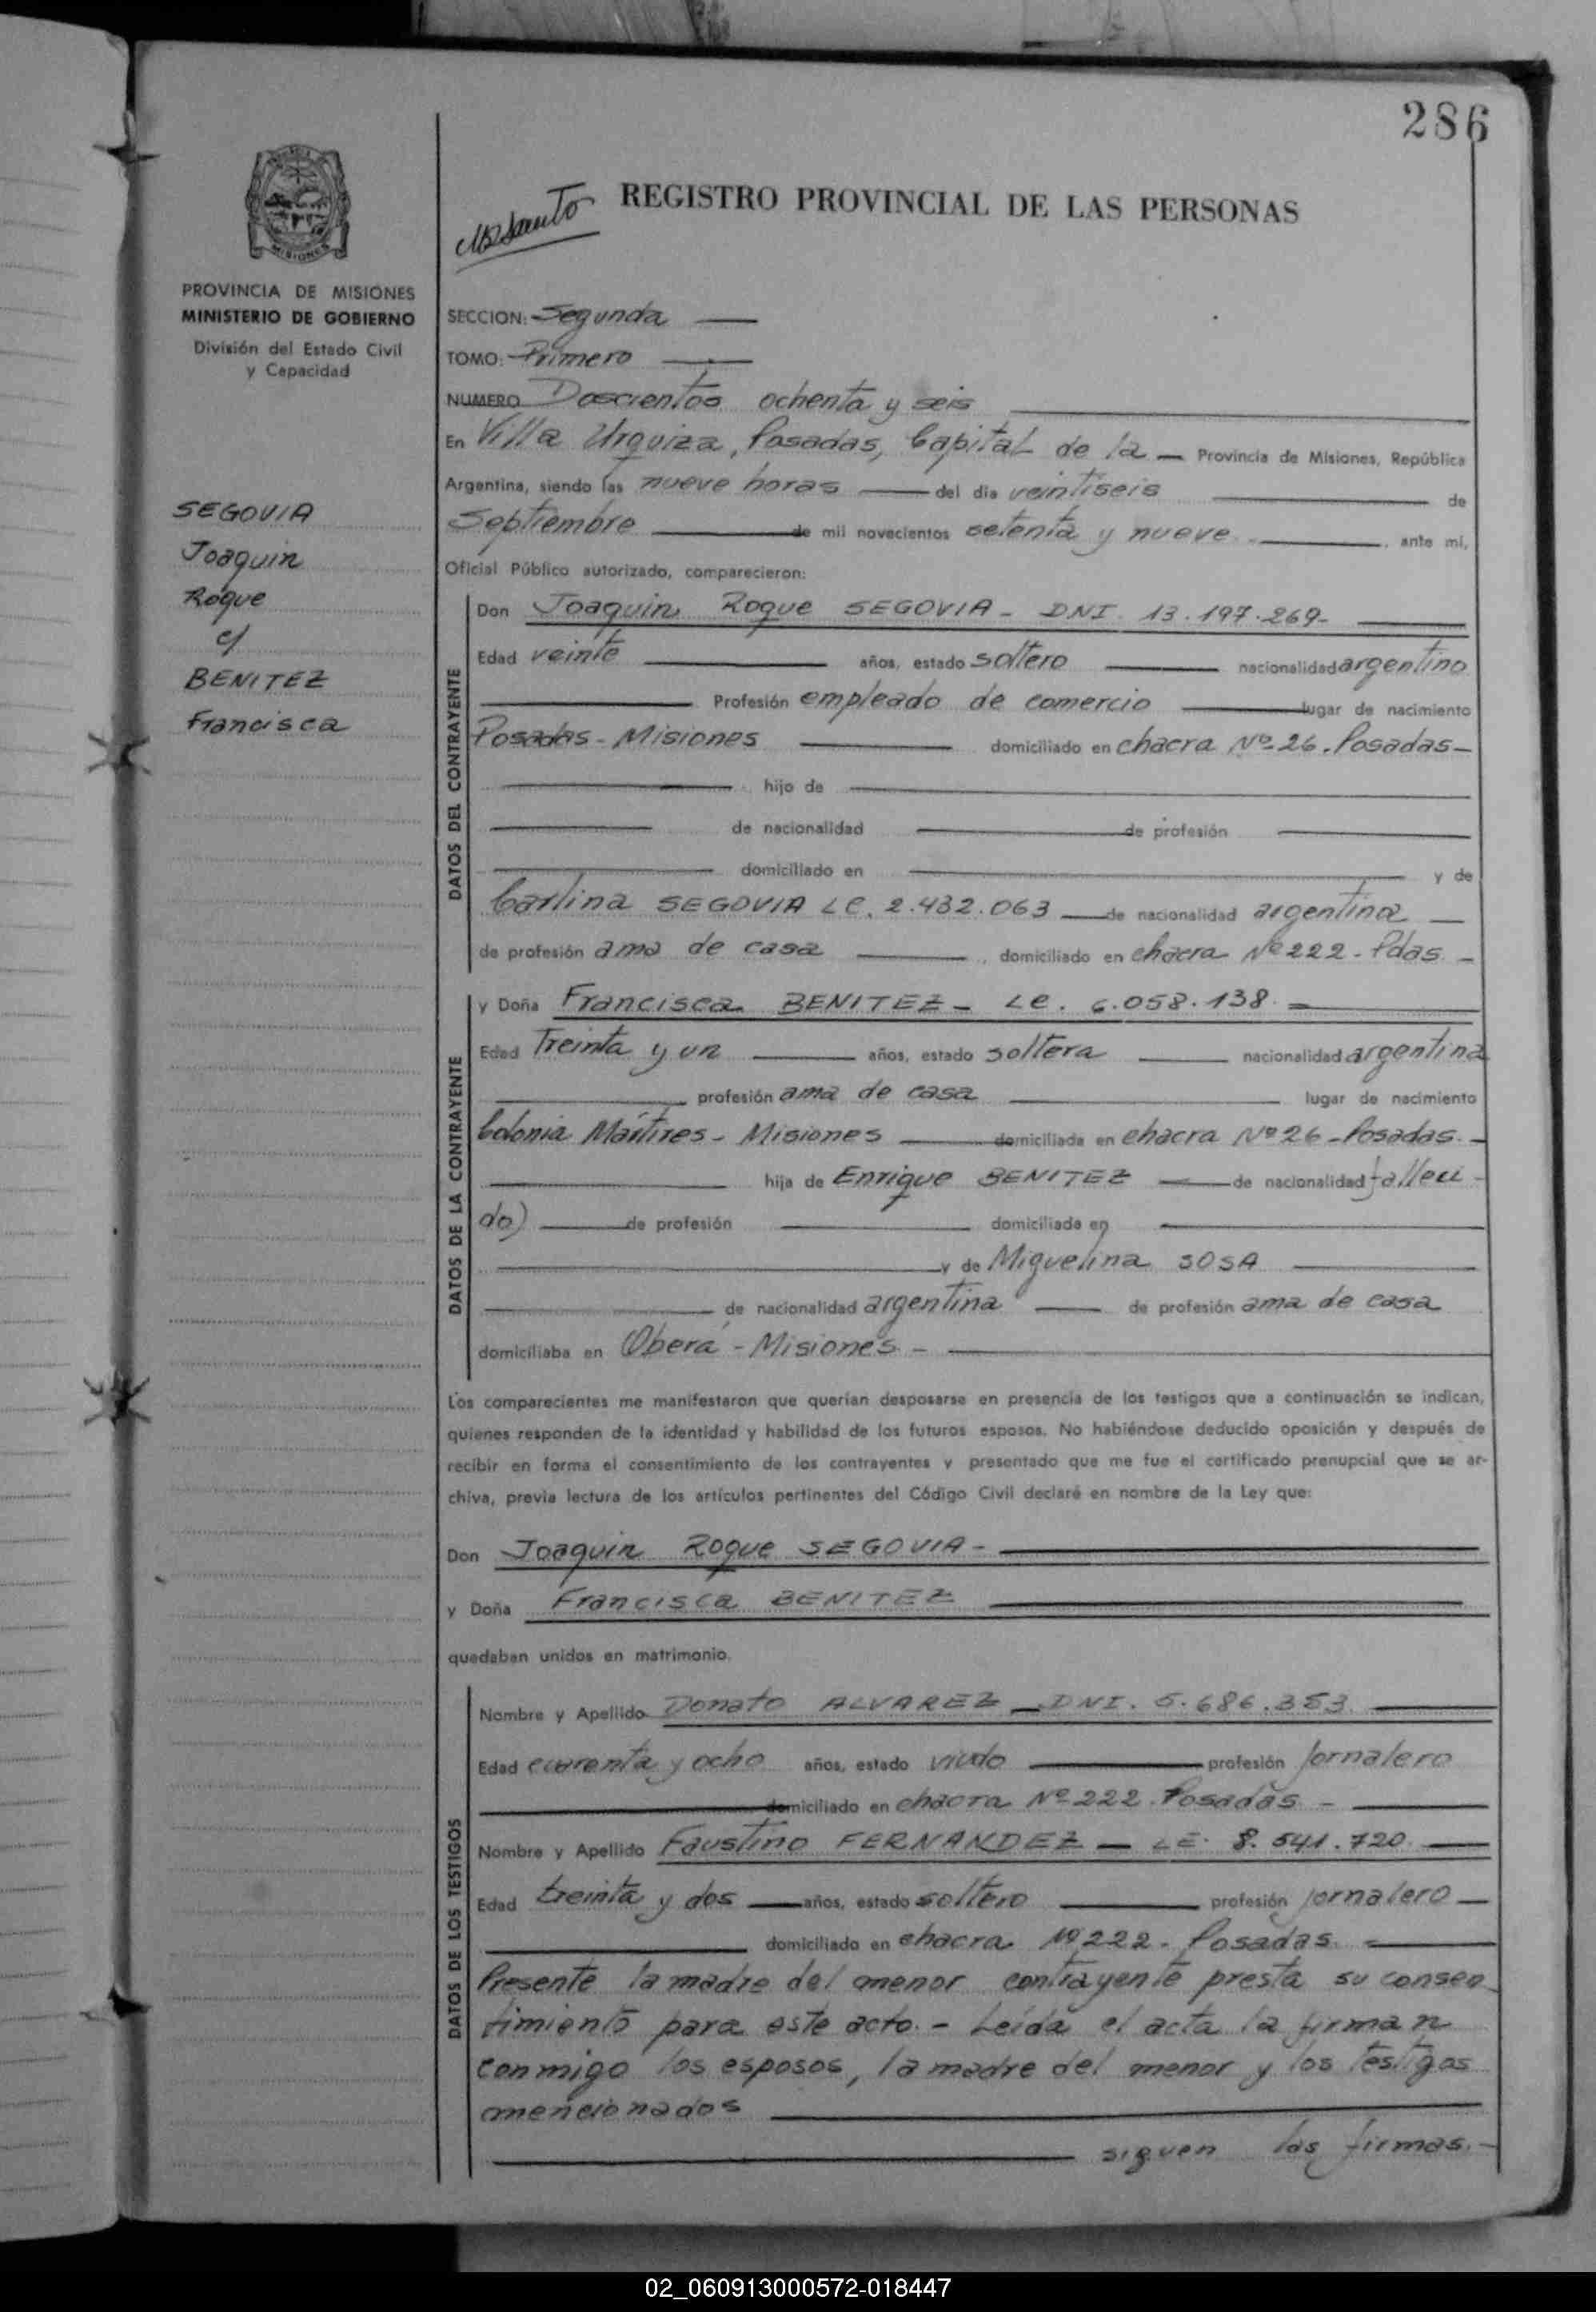 286
REGISTRO PROVINCIAL DE LAS PERSONAS
MISIONES
PROVINCIA DE MISIONES
MINISTERIO DE GOBIERNO
División del Estado Civil
y Capacidad
SEGOVIA
Joaquin
Roque
c/
BENITEZ
Francisca
SECCION: Segunda
TOMO: Primero
NUMERO Doscientos ochenta y seis
En Villa Urquiza, Posadas, Capital de la Provincia de Misiones, República
Argentina, siendo las nueve horas del día veintiseis de
Septiembre de mil novecientos setenta y nueve, ante mí,
Oficial Público autorizado, comparecieron:
DATOS DEL CONTRAYENTE
Don Joaquin Roque SEGOVIA - DNI. 13.197.269-
Edad veinte años, estado soltero nacionalidad argentino
Profesión empleado de comercio lugar de nacimiento
Posadas - Misiones domiciliado en chacra Nº 26. Posadas-
hijo de
de nacionalidad de profesión
domiciliado en y de
Carlina SEGOVIA LC. 2.432.063 de nacionalidad argentina
de profesión ama de casa, domiciliado en chacra Nº 222 - Pdas. -
DATOS DE LA CONTRAYENTE
y Doña Francisca BENITEZ - LC. 6.058.138.
Edad Treinta y un años, estado soltera nacionalidad argentina
profesión ama de casa lugar de nacimiento
Colonia Mártires - Misiones domiciliada en chacra Nº 26 - Posadas. -
hija de Enrique BENITEZ de nacionalidad falleci-
do) de profesión domiciliada en
y de Miguelina SOSA
de nacionalidad argentina de profesión ama de casa
domiciliaba en Oberá - Misiones. -
Los comparecientes me manifestaron que querían desposarse en presencia de los testigos que a continuación se indican,
quienes responden de la identidad y habilidad de los futuros esposos. No habiéndose deducido oposición y después de
recibir en forma el consentimiento de los contrayentes y presentado que me fue el certificado prenupcial que se ar-
chiva, previa lectura de los artículos pertinentes del Código Civil declaré en nombre de la Ley que:
Don Joaquin Roque SEGOVIA -
y Doña Francisca BENITEZ
quedaban unidos en matrimonio.
DATOS DE LOS TESTIGOS
Nombre y Apellido Donato ALVAREZ - DNI. 5.686.353.
Edad cuarenta y ocho años, estado viudo profesión Jornalero
domiciliado en chacra Nº 222. Posadas -
Nombre y Apellido Faustino FERNANDEZ - LE. 8.541.720.
Edad treinta y dos años, estado soltero profesión jornalero
domiciliado en chacra Nº 222 - Posadas.
Presente la madre del menor contrayente presta su consen
timiento para este acto. - Leída el acta la firman
conmigo los esposos, la madre del menor y los testigos
mencionados
siguen las firmas. -
02_060913000572-018447